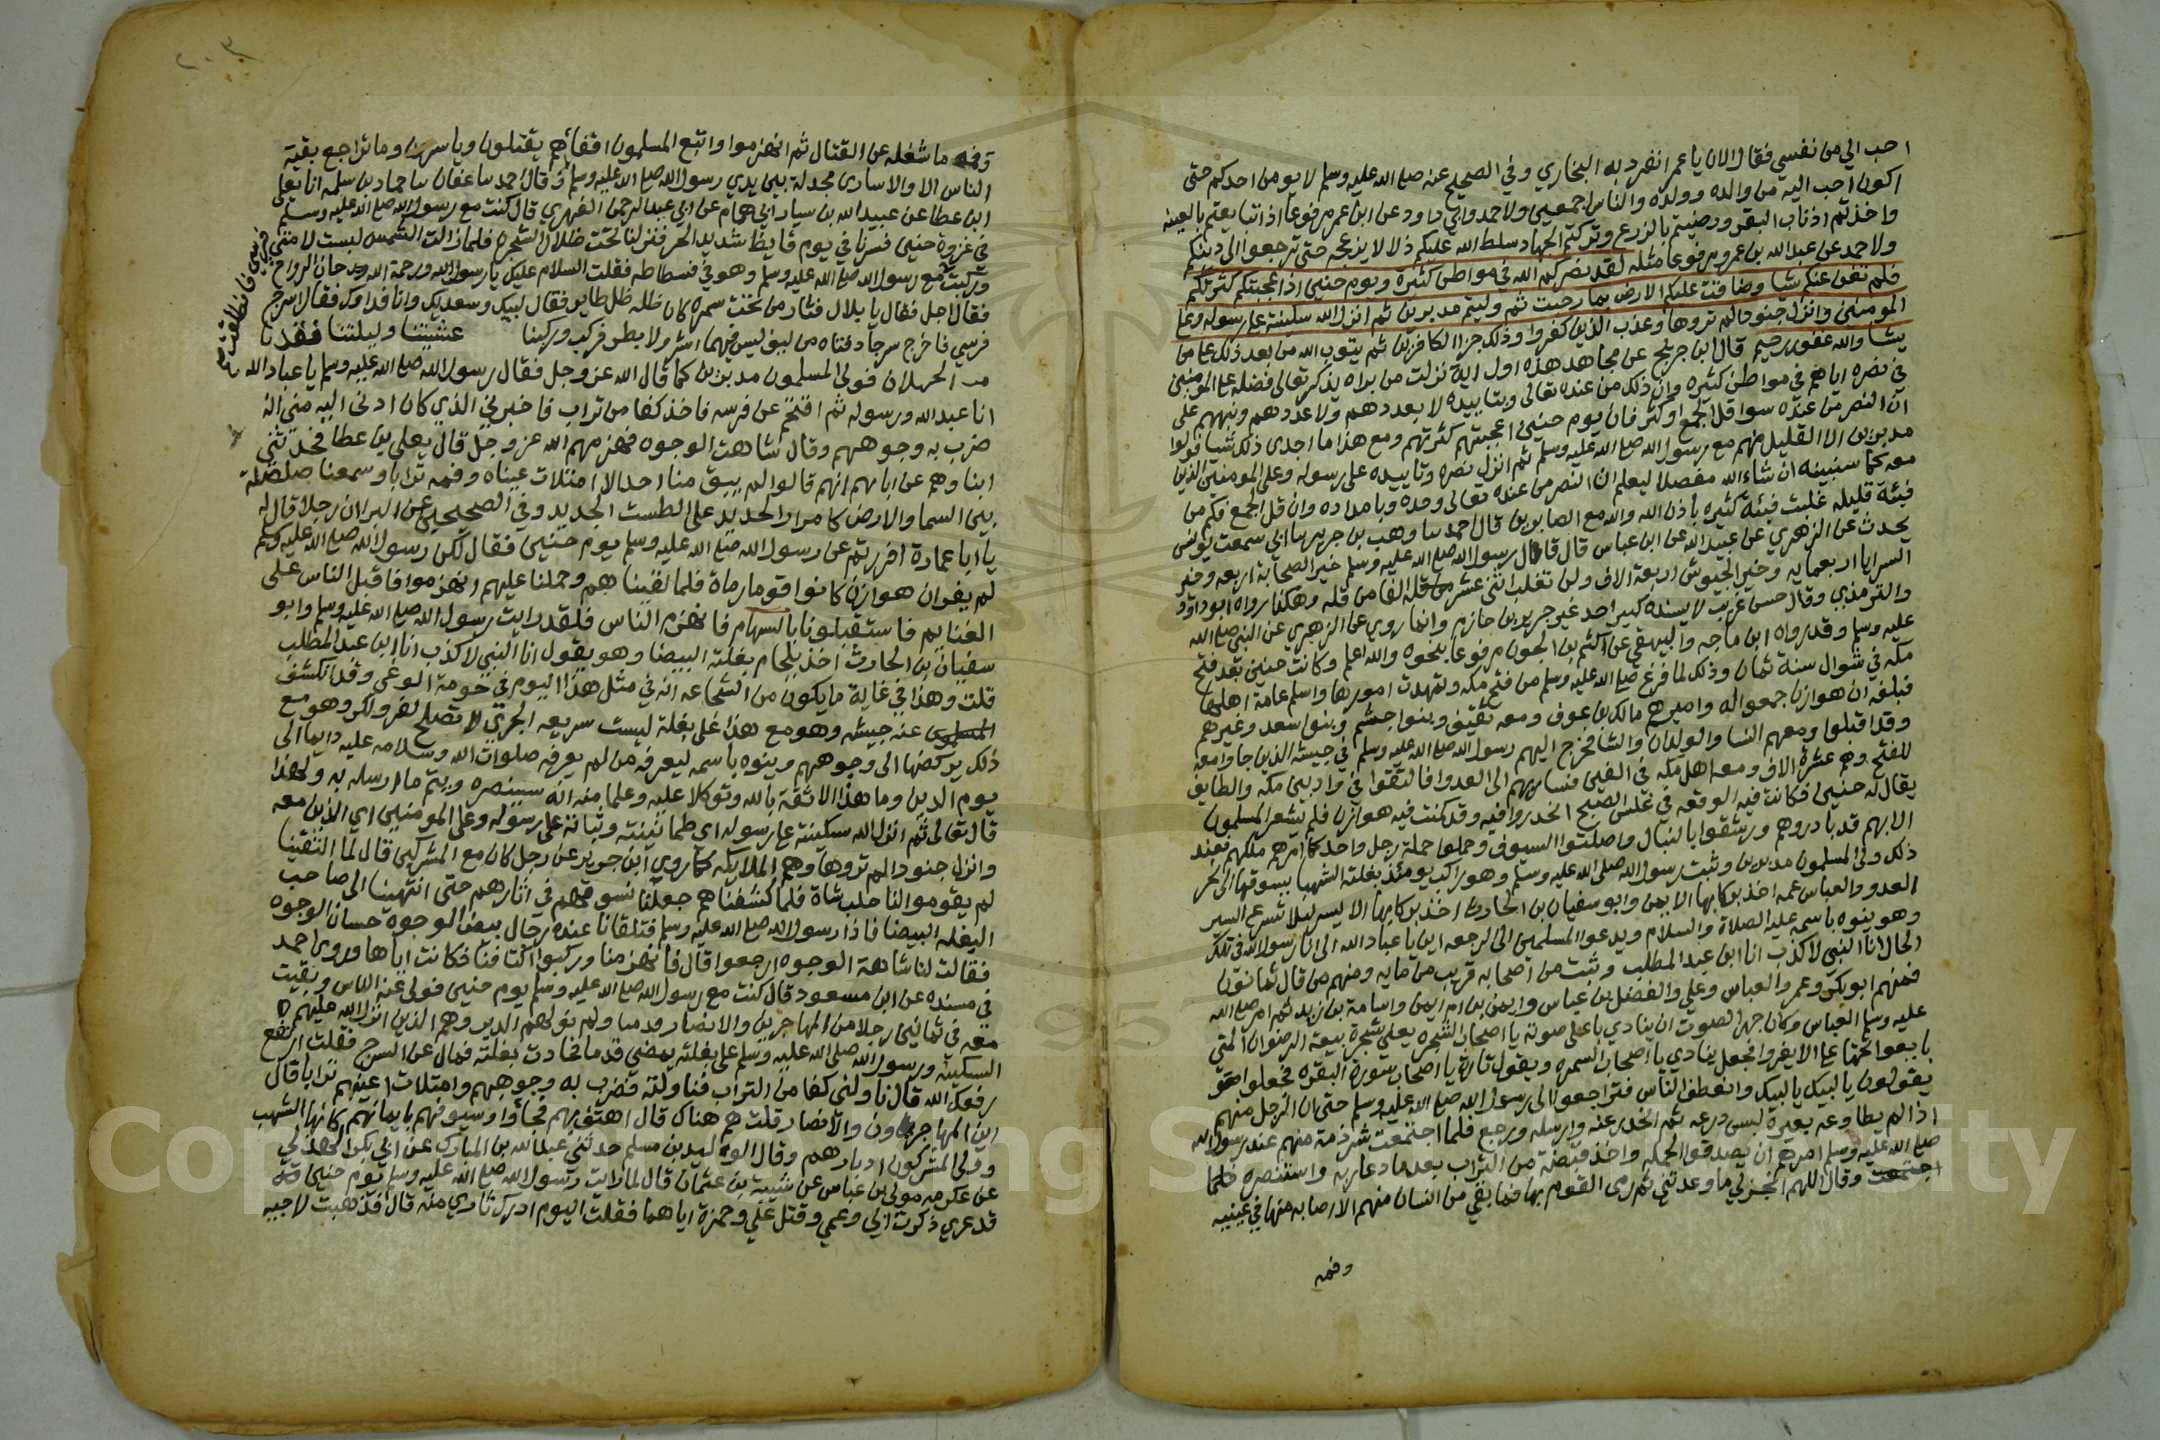 احب الي من نفسي فقال الان يا عمر انفرد به البخاري وفي الصحيح عنه صلى الله عليه وسلم لا يومن احدكم حتى
اكون احب اليه من والده وولده والناس اجمعين ولاحمد وابي داود عن ابن عمر مرفوعا اذا تبايعتم بالعينه
واخذتم اذناب البقر ورضيتم بالزرع وتركتم الجهاد سلط الله عليكم ذلا لا ينزعه حتى ترجعوا الى دينكم
ولاحمد عن عبد الله بن عمرو مرفوعا مثله لقد نصركم الله في مواطن كثيرة ويوم حنين اذ اعجبتكم كثرتكم
فلم تغن عنكم شيا وضاقت عليكم الارض بما رحبت ثم وليتم مدبرين ثم انزل الله سكينته على رسوله وعلى
المومنين وانزل جنودا لم تروها وعذب الذين كفروا وذلك جزا الكافرين ثم يتوب الله من بعد ذلك على من
يشا والله غفور رحيم قال ابن جريج عن مجاهد هذه اول اية نزلت من براه يذكر تعالى فضله على المومنين
في نصره اياهم في مواطن كثيره وان ذلك من عنده تعالى وبتاييده لا بعددهم ولا عددهم ونبههم على
ان النصر من عنده سوا قل الجمع او كثر فان يوم حنين اعجبتهم كثرتهم ومع هذا ما اجدى ذلك شيا فولوا
مدبرين الا القليل منهم مع رسول الله صلى الله عليه وسلم ثم انزل نصره وتاييده على رسوله وعلى المومنين الذين
معه كما سنبينه ان شاء الله مفصلا ليعلم ان النصر من عنده تعالى وحده وبامداده وان قل الجمع فكم من
فيئة قليله غلبت فيئة كثيره باذن الله والله مع الصابرين قال احمد سا وهب بن جرير سا ابي سمعت يونس
يحدث عن الزهري عن عبيد الله عن ابن عباس قال قال رسول الله صلى الله عليه وسلم خير الصحابة اربعه وخير
السرايا اربعمايه وخير الجيوش اربعة الاف ولن تغلب اثني عشر من قلة الفا من قله وهكذا رواه ابو داود
والترمذي وقال حسن غريب لا يسنده كبير احد غير جرير بن حازم وانما روي عن الزهري عن النبي صلى الله
عليه وسلم وقد رواه ابن ماجه والبيهقي عن اكثم بن الجون مرفوعا بنحوه والله اعلم وكانت حنين بعد فتح
مكه في شوال سنة ثمان وذلك لما فرغ صلى الله عليه وسلم من فتح مكه وتمهدت امورها واسلم عامة اهلها
فبلغه ان هوازن جمعوا له واميرهم مالك بن عوف ومعه ثقيف وبنو جشم وبنو سعد وغيرهم
وقد اقبلوا ومعهم النسا والولدان والشا فخرج اليهم رسول الله صلى الله عليه وسلم في جيشه الذين جاوا معه
للفتح وهم عشرة الاف ومعه اهل مكه في الفين فسار بهم الى العدو فالتقوا في واد بين مكه والطايف
يقال له حنين فكانت فيه الوقعه في غلس الصبح انحدروا فيه وقد كمنت فيه هوازن فلم يشعر المسلمون
الا بهم قد بادروهم ورشقوا بالنبال واصلتوا السيوف وحملوا حملة رجل واحد كما امرهم ملكهم فعند
ذلك ولى المسلمون مدبرين وثبت رسول الله صلى الله عليه وسلم وهو راكب يومئذ بغلته الشهبا يسوقها الى نحر
العدو والعباس عمه اخذ بركابها الايمن وابو سفيان بن الحارث اخذ بركابها الايسر ليلا تسرع السير
وهو ينوه باسمه عليه الصلاة والسلام ويدعو المسلمين الى الرجعه اين يا عباد الله الى انا رسول الله في تلك
الحال انا النبي لا كذب انا ابن عبد المطلب وثبت من اصحابه قريب من مايه ومنهم من قال ثمانون
فمنهم ابو بكر وعمر والعباس وعلي والفضل بن عباس وايمن بن ام ايمن واسامة بن زيد ثم امر صلى الله
عليه وسلم العباس وكان جهير الصوت ان ينادي باعلى صوته يا اصحاب الشجره يعني شجرة بيعة الرضوان التي
بايعوا تحتها على الا يفروا فجعل ينادي يا اصحاب السمره ويقول تارة يا اصحاب سورة البقره فجعلوا
يقولون يا لبيك يا لبيك وانعطف الناس فتراجعوا الى رسول الله صلى الله عليه وسلم حتى ان الرجل منهم
اذا لم يطاوعه بعيره لبس درعه ثم انحدر عنه وارسله ورجع فلما اجتمعت شرذمة منهم عند رسول الله
صلى الله عليه وسلم امرهم ان يصدقوا الحمله واخذ قبضة من التراب بعد ما دعا ربه واستنصره فلما
اجتمعت وقال اللهم انجز لي ما وعدتني ثم رمى القوم بها فما بقي من انسان منهم الا اصابه منها في عينيه
وفمه
٢٠٣
وفمه ما شغله عن القتال ثم انهزموا واتبع المسلمون اقفاهم يقتلون وياسرون وما تراجع بقية
الناس الا والاسارى مجدلة بين يدي رسول الله صلى الله عليه وسلم وقال احمد سا عفان سا حماد بن سلمه انا يعلى
ابن عطا عن عبيد الله بن سيار ابي همام عن ابي عبد الرحمن الفهري قال كنت مع رسول الله صلى الله عليه وسلم
في غزوة حنين فسرنا في يوم قايظ شديد الحر فنزلنا تحت ظلال الشجر فلما زالت الشمس لبست لامتي
وركبت فرسي فانطلقت الى رسول الله صلى الله عليه وسلم وهو في فسطاطه فقلت السلام عليك يا رسول الله ورحمة الله وبركاته حان الرواح
فقال اجل فقال يا بلال فثار من تحت سمرة كان ظله ظل طاير فقال لبيك وسعديك وانا فداوك فقال اسرج
فرسي فاخرج سرجا دفتاه من ليف ليس فيهما اشر ولا بطر فركب وركبنا عشيتنا وليلتنا
الخيلان فولى المسلمون مدبرين كما قال الله عز وجل فقال رسول الله صلى الله عليه وسلم يا عباد الله
انا عبد الله ورسوله ثم اقتحم عن فرسه فاخذ كفا من تراب فاخبرني الذي كان ادنى اليه مني انه
ضرب به وجوههم وقال شاهت الوجوه فهزمهم الله عز وجل قال يعلى بن عطا فحدثني
ابناوهم عن ابايهم انهم قالوا لم يبق منا احد الا امتلات عيناه وفمه ترابا وسمعنا صلصلة
بين السما والارض كامرار الحديد على الطست الجديد وفي الصحيحين عن البرا ان رجلا قال له
يا ابا عمارة افررتم عن رسول الله صلى الله عليه وسلم يوم حنين فقال لكن رسول الله صلى الله عليه وسلم
لم يفر ان هوازن كانوا قوما رماة فلما لقيناهم وحملنا عليهم انهزموا فاقبل الناس على
الغنايم فاستقبلونا بالسهام فانهزم الناس فلقد رايت رسول الله صلى الله عليه وسلم وابو
سفيان بن الحارث اخذ بلجام بغلته البيضا وهو يقول انا النبي لا كذب انا ابن عبد المطلب
قلت وهذا في غاية ما يكون من الشجاعه انه في مثل هذا اليوم في حومة الوغى وقد انكشف
عنه جيشه وهو مع هذا على بغلة ليست سريعه الجري لا تصلح لفر ولا كر وهو مع
ذلك يركضها الى وجوههم وينوه باسمه ليعرفه من لم يعرفه صلوات الله وسلامه عليه دايما الى
يوم الدين وما هذا الا ثقة بالله وتوكلا عليه وعلما منه انه سينصره ويتم ما ارسله به ولهذا
قال تعالى ثم انزل الله سكينته على رسوله اي طمانينته وثباته على رسوله وعلى المومنين اي الذين معه
وانزل جنودا لم تروها وهم الملايكه كما روى ابن جرير عن رجل كان مع المشركين قال لما التقينا
لم يقوموا لنا حلب شاة فلما كشفناهم جعلنا نسوقهم في اثارهم حتى انتهينا الى صاحب
البغله البيضا فاذا رسول الله صلى الله عليه وسلم فتلقانا عنده رجال بيض الوجوه حسان الوجوه
فقالت لنا شاهة الوجوه ارجعوا قال فانهزمنا وركبوا اكتافنا فكانت اياها وروى احمد
في مسنده عن ابن مسعود قال كنت مع رسول الله صلى الله عليه وسلم يوم حنين فولى عنه الناس وبقيت
معه في ثمانين رجلا من المهاجرين والانصار قدمنا ولم نولهم الدبر وهم الذين انزل الله عليهم
السكينه ورسول الله صلى الله عليه وسلم على بغلته يمضي قدما فحادت بغلته فمال عن السرج فقلت ارتفع
رفعك الله قال ناولني كفا من التراب فناولته فضرب به وجوههم وامتلات اعينهم ترابا قال
اين المهاجرون والانصار قلت هم هناك قال اهتف بهم فجاوا وسيوفهم بايمانهم كانها الشهب
وولى المشركون ادبارهم وقال الوليد بن مسلم حدثني عبد الله بن المبارك عن ابي بكر الهذلي
عن عكرمه مولى ابن عباس عن شيبة بن عثمان قال لما رايت رسول الله صلى الله عليه وسلم يوم حنين
قد عري ذكرت ابي وعمي وقتل علي وحمزة اياهما فقلت اليوم ادرك ثاري منه قال فذهبت لاجيه